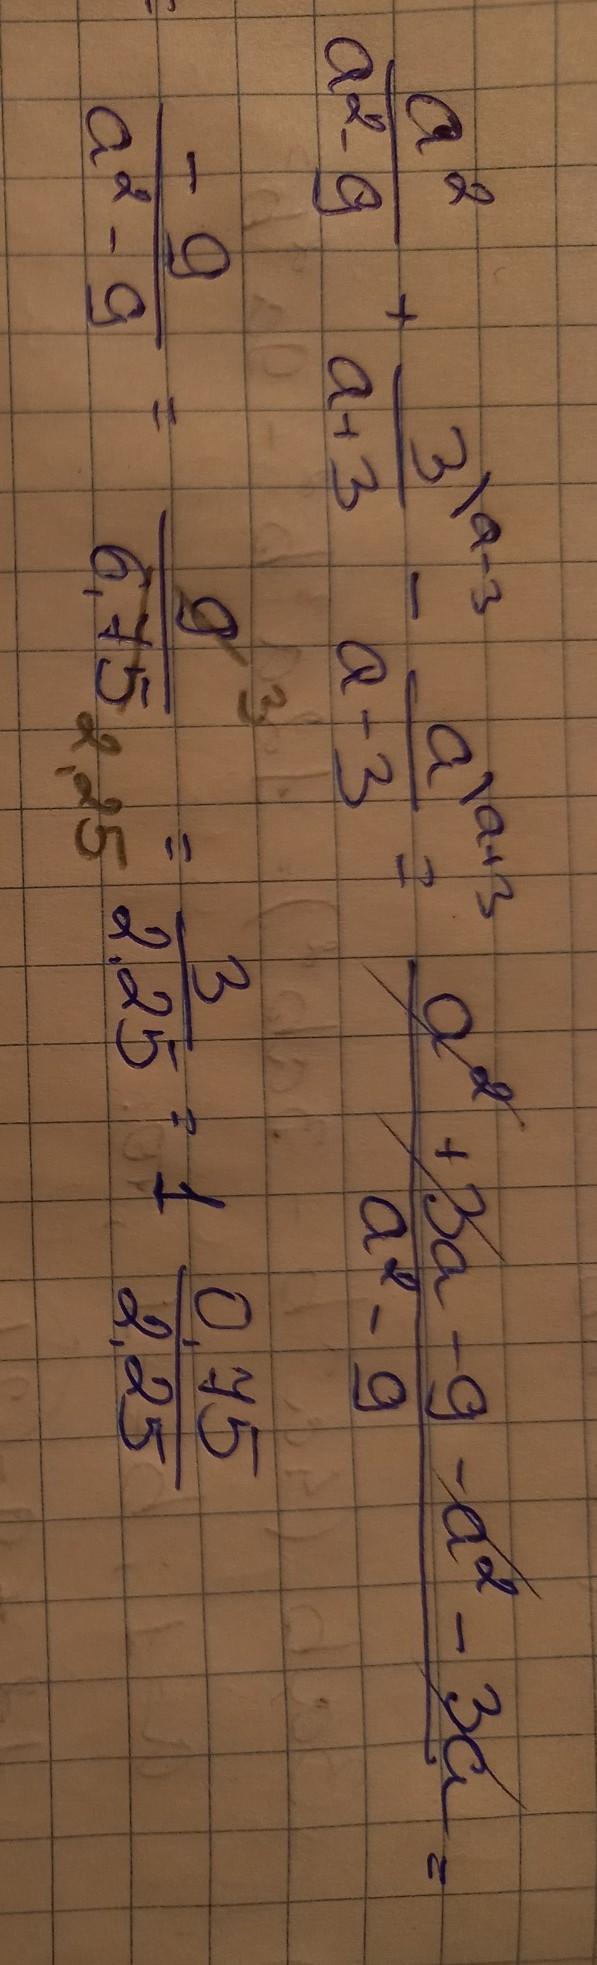 a²/(a²-9) + 3\a-3/(a+3) - a\a+3/(a-3) = (a² + 3a - 9 - a² - 3a)/(a² - 9) =
= -9/(a² - 9) = 9 3/6,75 2,25 = 3/2,25 = 1 0,75/2,25